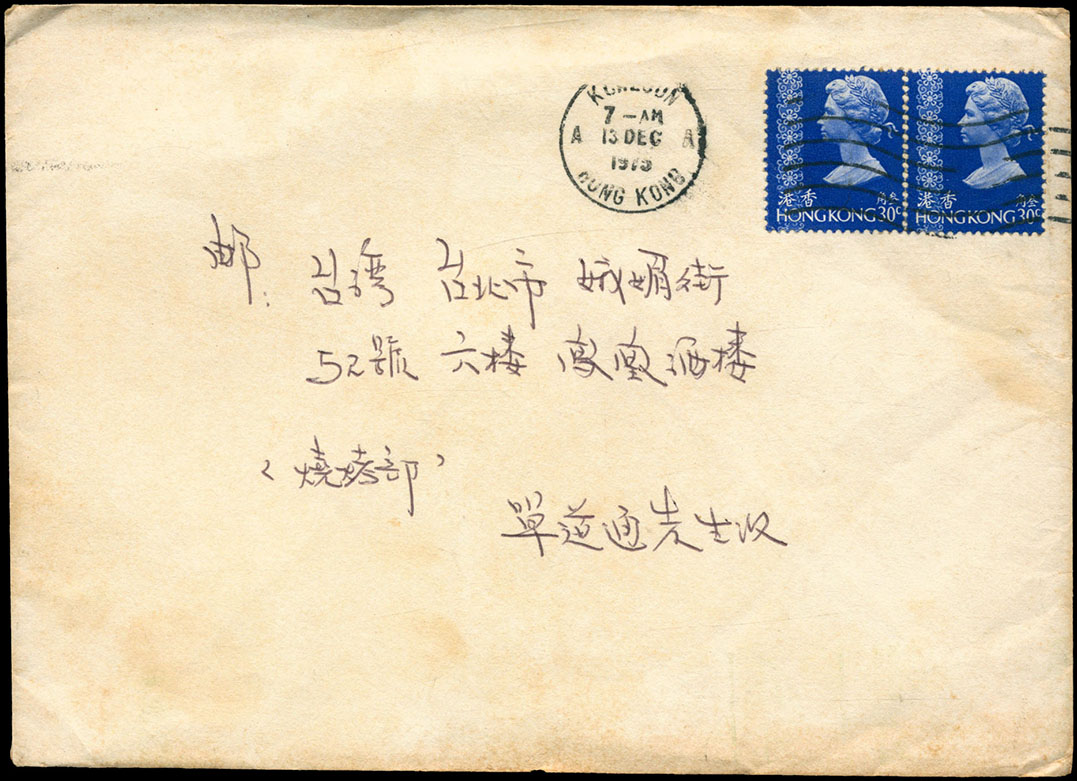 KOWLOON
7-AM
A 13 DEC A
1973
HONG KONG
港香 角叁
HONG KONG 30c
港香 角叁
HONG KONG 30c
邮: 台湾 台北市 娥媚街
52號 六楼 鳳凰酒楼
(燒烤部)
單道通先生收